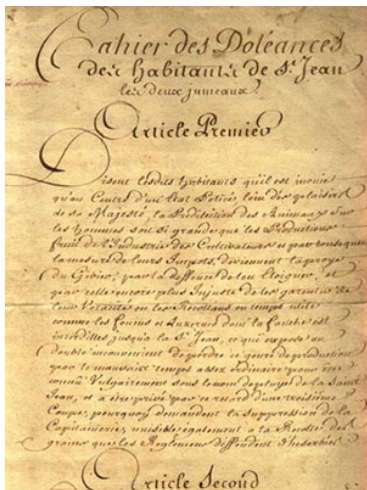 Cahier des Doléances
des habitants de St. Jean
les deux jumeaux.
Article Premier
Disent lesdits habitants qu'il est inouie
qu'au Centre d'un Etat Policé, loin des plaisirs
de sa Majesté, la Prédilection des Animaux sur
les hommes soit si grande que les Productions
fruit de l'Industrie des Cultivateurs et par consequent
la mesure de leurs Impots, deviennent la proye
du Gibier, par la deffence de leur Eloigner, et
par celle encore plus Injuste de les garentir de
leur Voracité en les Récoltans en temps utile
comme les foins et Luzernes dont la fauche est
interditte jusqu'à la St. Jean, ce qui expose au
double inconvenient de perdre ce genre de production
par le mauvais temps assez ordinaire pour être
connu Vulgairement sous le nom de pluyes de la Saint
Jean, et à être privé par ce retard d'une troisième
Coupe, pourquoy demandent la suppression de la
Capitainerie, nuisible également à la Récolte des
grains que les Reglemens deffendent d'herbier
Article Second